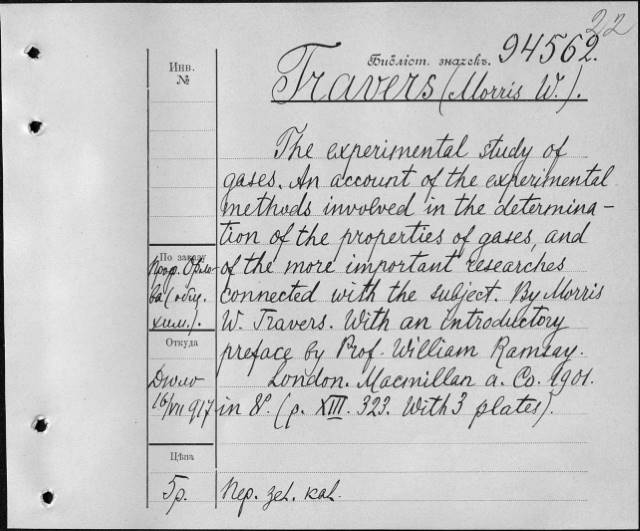 22
Библіот. значекъ. 94562.
Инв.
№
Travers (Morris W.).
The experimental study of
gases. An account of the experimental
methods involved in the determina-
tion of the properties of gases, and
of the more important researches
connected with the subject. By Morris
W. Travers. With an introductory
preface by Prof. William Ramsay.
London. Macmillan a. Co. 1901.
in 8°. (p. XIII. 323. With 3 plates).
По заказу
Проф. Орло-
ва (общ.
хим.).
Откуда
16/VII 917
Цѣна
5р.
Пер. зел. кал.